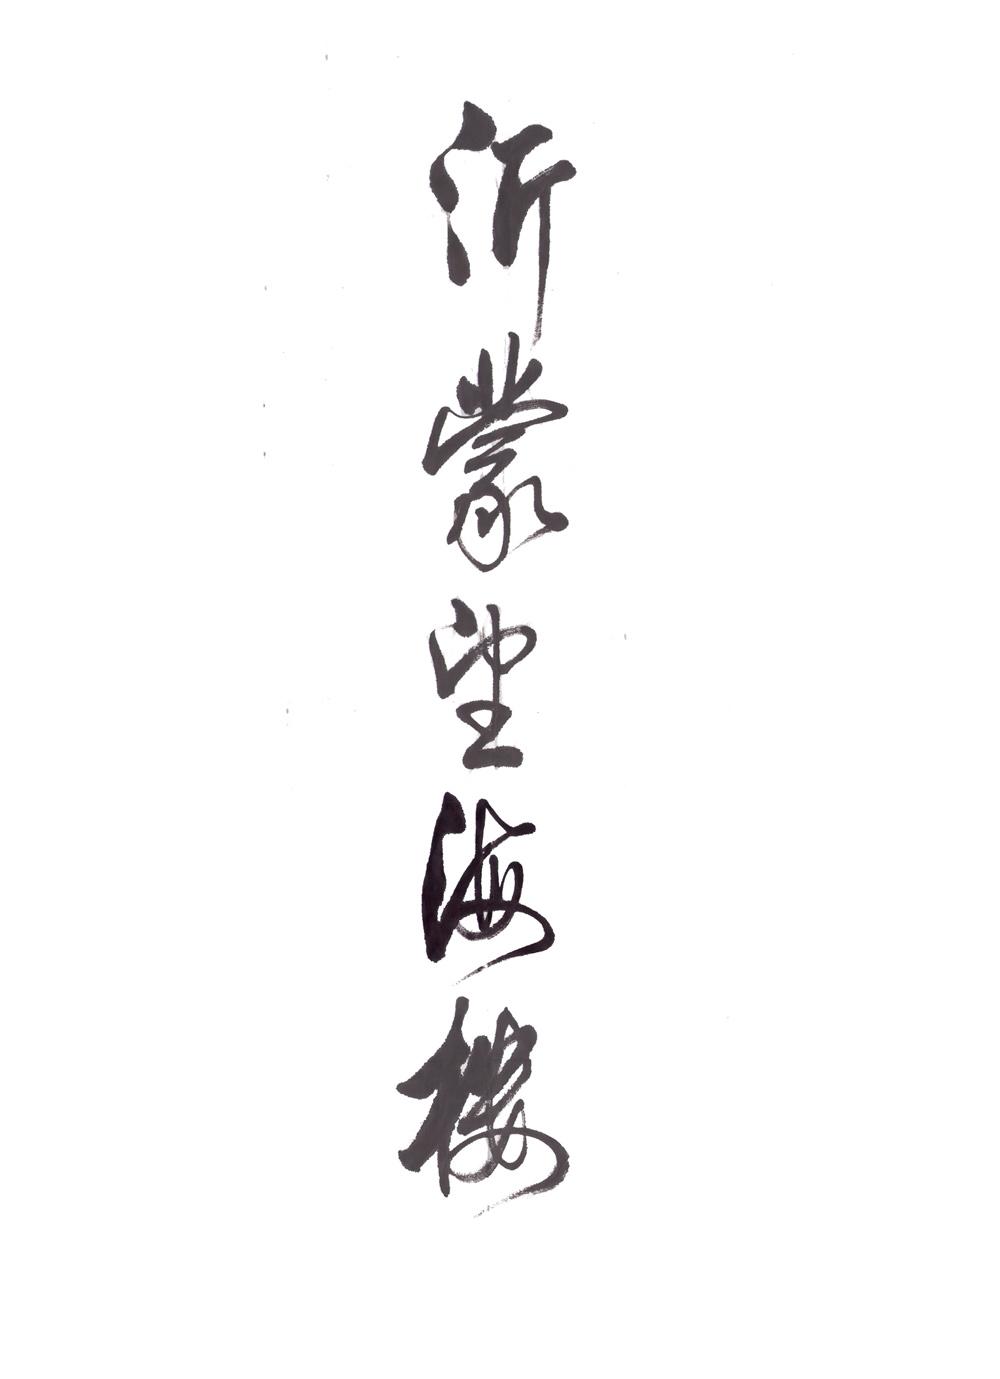 沂蒙望海楼